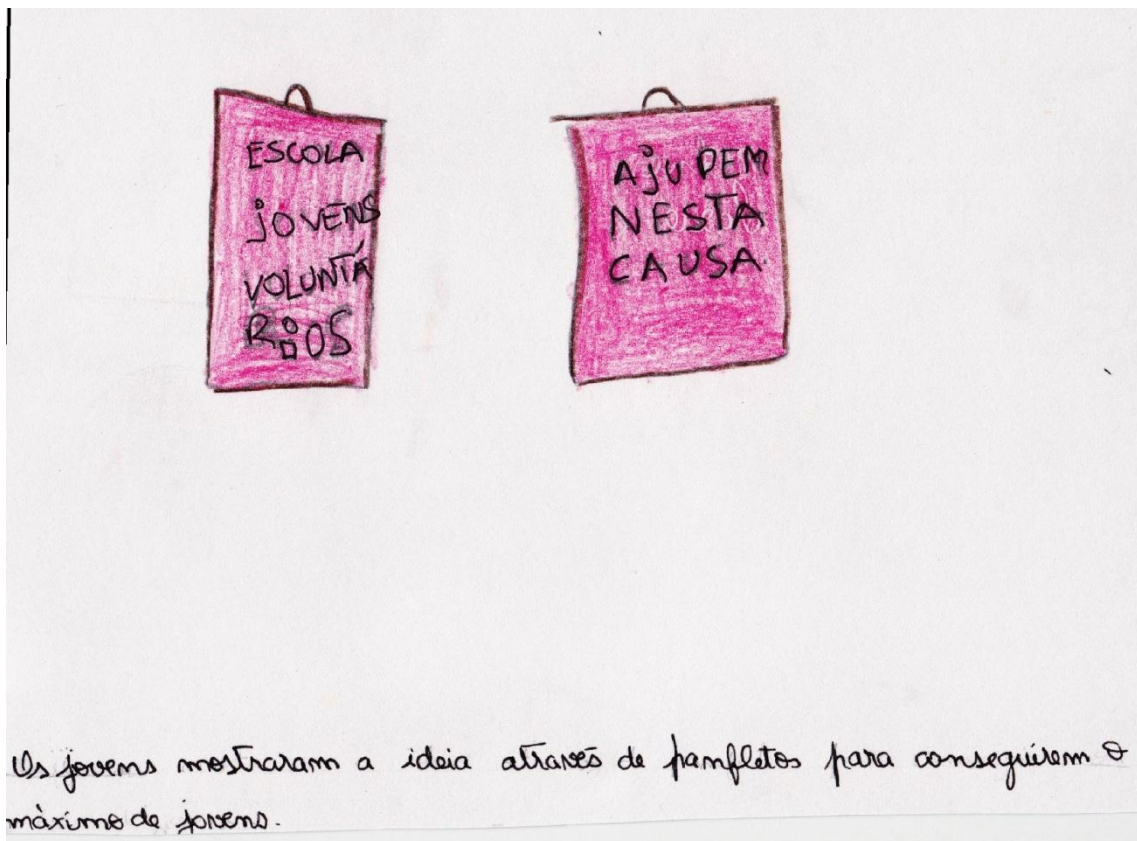 ESCOLA
jOVENS
VOLUNTÁ
RiOS
AjUDEM
NESTA
CAUSA.
Os jovens mostraram a ideia através de panfletos para conseguirem o
máximo de jovens.